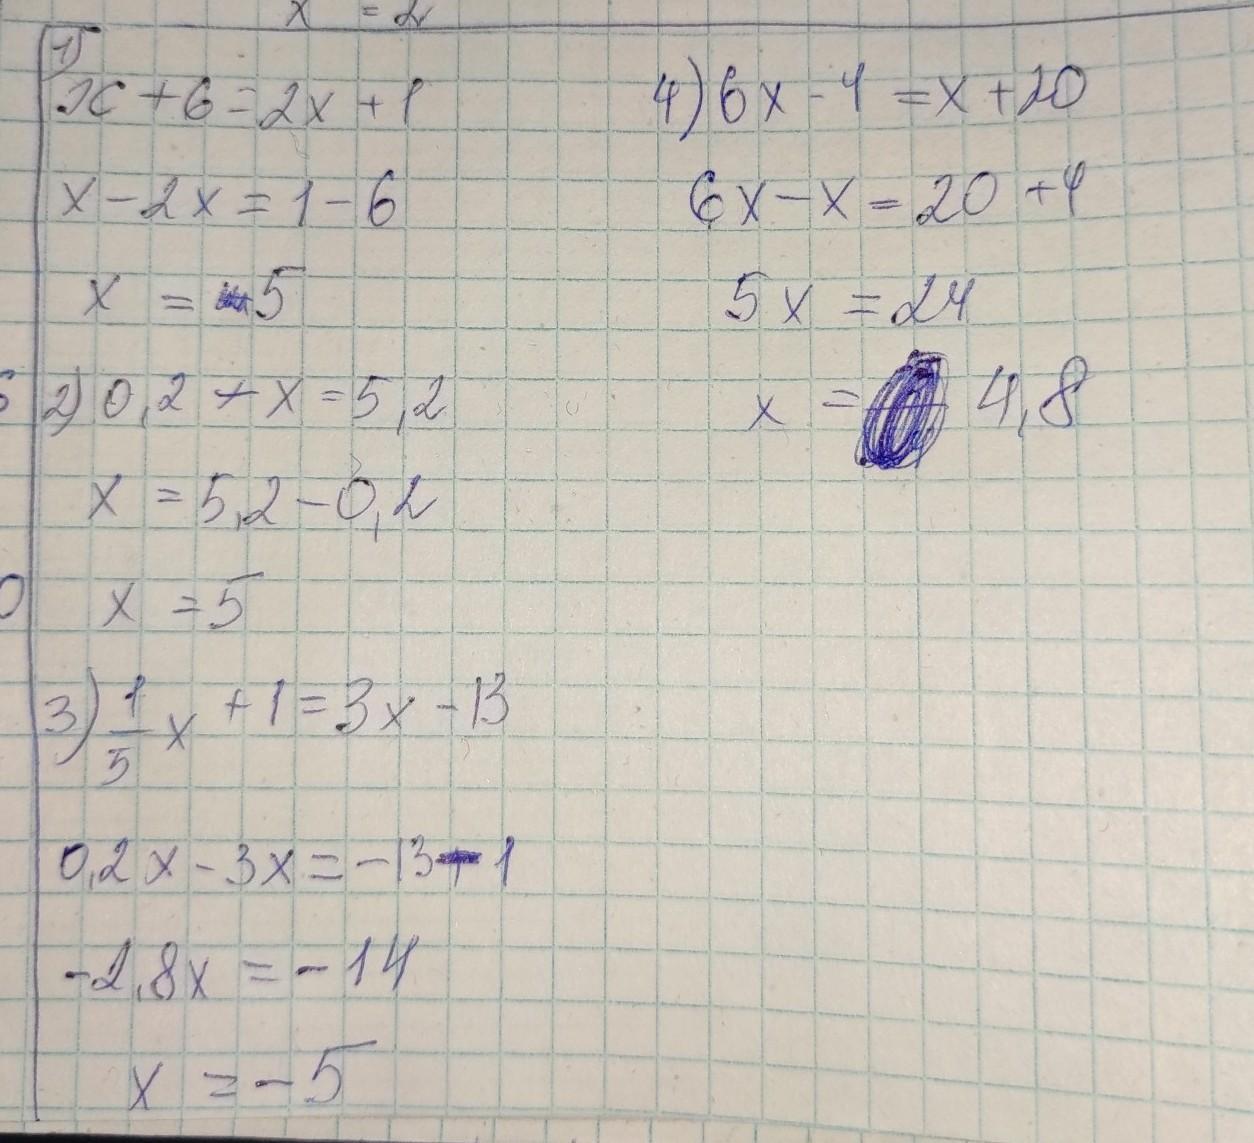 x = 2
1)
x + 6 = 2x + 1
x - 2x = 1 - 6
x = 5
2) 0,2 + x = 5,2
x = 5,2 - 0,2
x = 5
3) 1/5 x + 1 = 3x - 13
0,2x - 3x = -13 - 1
-2,8x = -14
x = -5
4) 6x - 4 = x + 20
6x - x = 20 + 4
5x = 24
x = 4,8